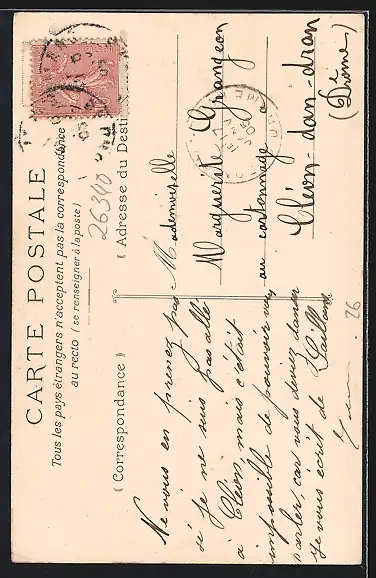 CARTE POSTALE
Tous les pays étrangers n'acceptent pas la correspondance
au recto (se renseigner à la poste)
26340
(Correspondance)
(Adresse du Desti
Ne vous en prenez pas
si je ne suis pas allé
à Cléon, mais c'était
impossible de pouvoir vous
parler, car vous deviez danser
Je vous écrit de Saillans
Mademoiselle
Marguerite Grangeon
au cartonnage à
Cléon-dan-dran
(Drôme)
26